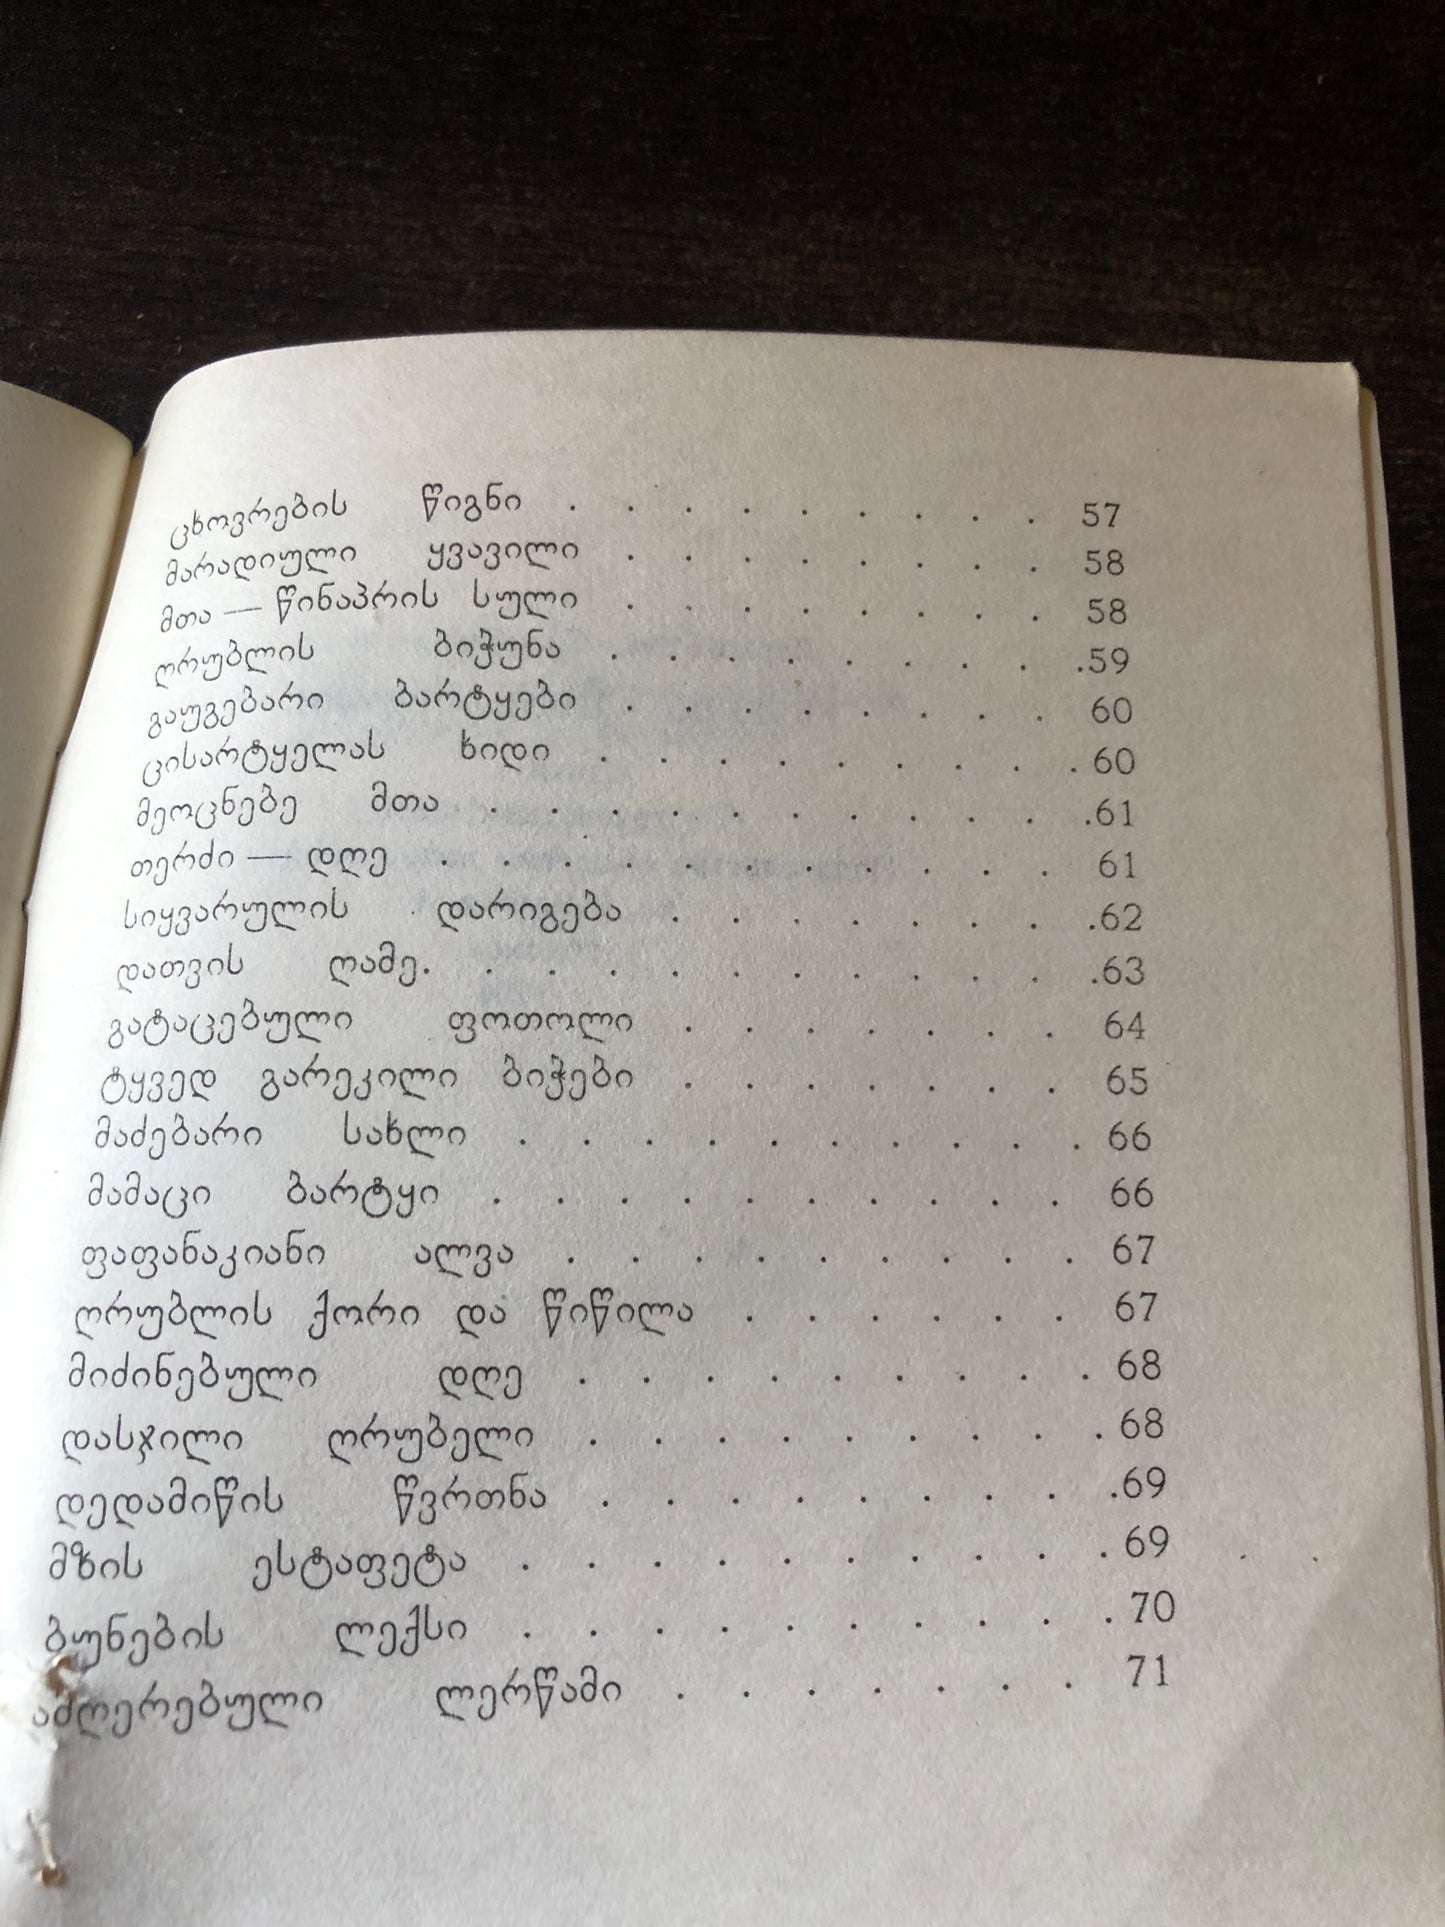 ცხოვრების წიგნი . . . . . . . . . 57
მარადიული ყვავილი . . . . . . . . 58
მთა — წინაპრის სული . . . . . . . . 58
ღრუბლის ბიჭუნა . . . . . . . . .59
გაუგებარი ბარტყები . . . . . . . . 60
ცისარტყელას ხიდი . . . . . . . . . 60
მეოცნებე მთა . . . . . . . . . . .61
თერძი — დღე . . . . . . . . . . . 61
სიყვარულის დარიგება . . . . . . . .62
დათვის ღამე. . . . . . . . . . . .63
გატაცებული ფოთოლი . . . . . . . 64
ტყვედ გარეკილი ბიჭები . . . . . . . 65
მაძებარი სახლი . . . . . . . . . . 66
მამაცი ბარტყი . . . . . . . . . . 66
ფაფანაკიანი ალვა . . . . . . . . . 67
ღრუბლის ქორი და წიწილა . . . . . . 67
მიძინებული დღე . . . . . . . . . 68
დასჯილი ღრუბელი . . . . . . . . . 68
დედამიწის წვრთნა . . . . . . . . .69
მზის ესტაფეტა . . . . . . . . . . 69
ბუნების ლექსი . . . . . . . . . . 70
ამღერებული ლერწამი . . . . . . . 71